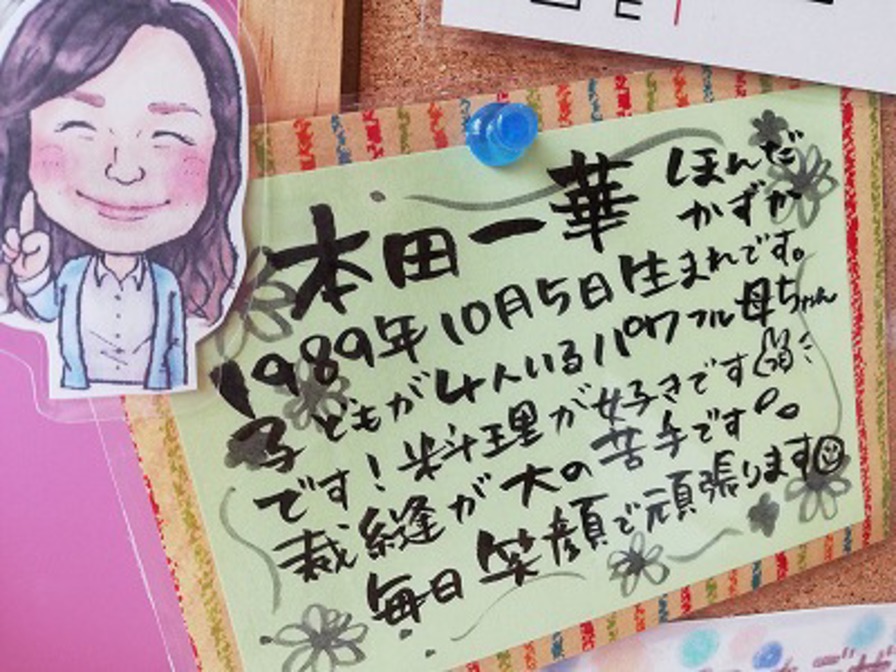 本田一華
ほんだ
かずか
1989年10月5日生まれです。
子どもが4人いるパワフル母ちゃん
です!料理が好きです
裁縫が大の苦手です
毎日笑顔で頑張ります